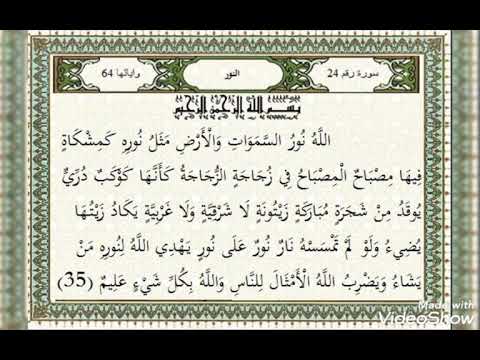 سورة رقم 24
النور
وآياتها 64
بسم الله الرحمن الرحيم
اللَّهُ نُورُ السَّمَوَاتِ وَالْأَرْضِ مَثَلُ نُورِهِ كَمِشْكَاةٍ
فِيهَا مِصْبَاحٌ الْمِصْبَاحُ فِي زُجَاجَةٍ الزُّجَاجَةُ كَأَنَّهَا كَوْكَبٌ دُرِّيٌّ
يُوقَدُ مِنْ شَجَرَةٍ مُبَارَكَةٍ زَيْتُونَةٍ لَا شَرْقِيَّةٍ وَلَا غَرْبِيَّةٍ يَكَادُ زَيْتُهَا
يُضِيءُ وَلَوْ لَمْ تَمْسَسْهُ نَارٌ نُورٌ عَلَى نُورٍ يَهْدِي اللَّهُ لِنُورِهِ مَنْ
يَشَاءُ وَيَضْرِبُ اللَّهُ الْأَمْثَالَ لِلنَّاسِ وَاللَّهُ بِكُلِّ شَيْءٍ عَلِيمٌ (35)
Made with
VideoShow